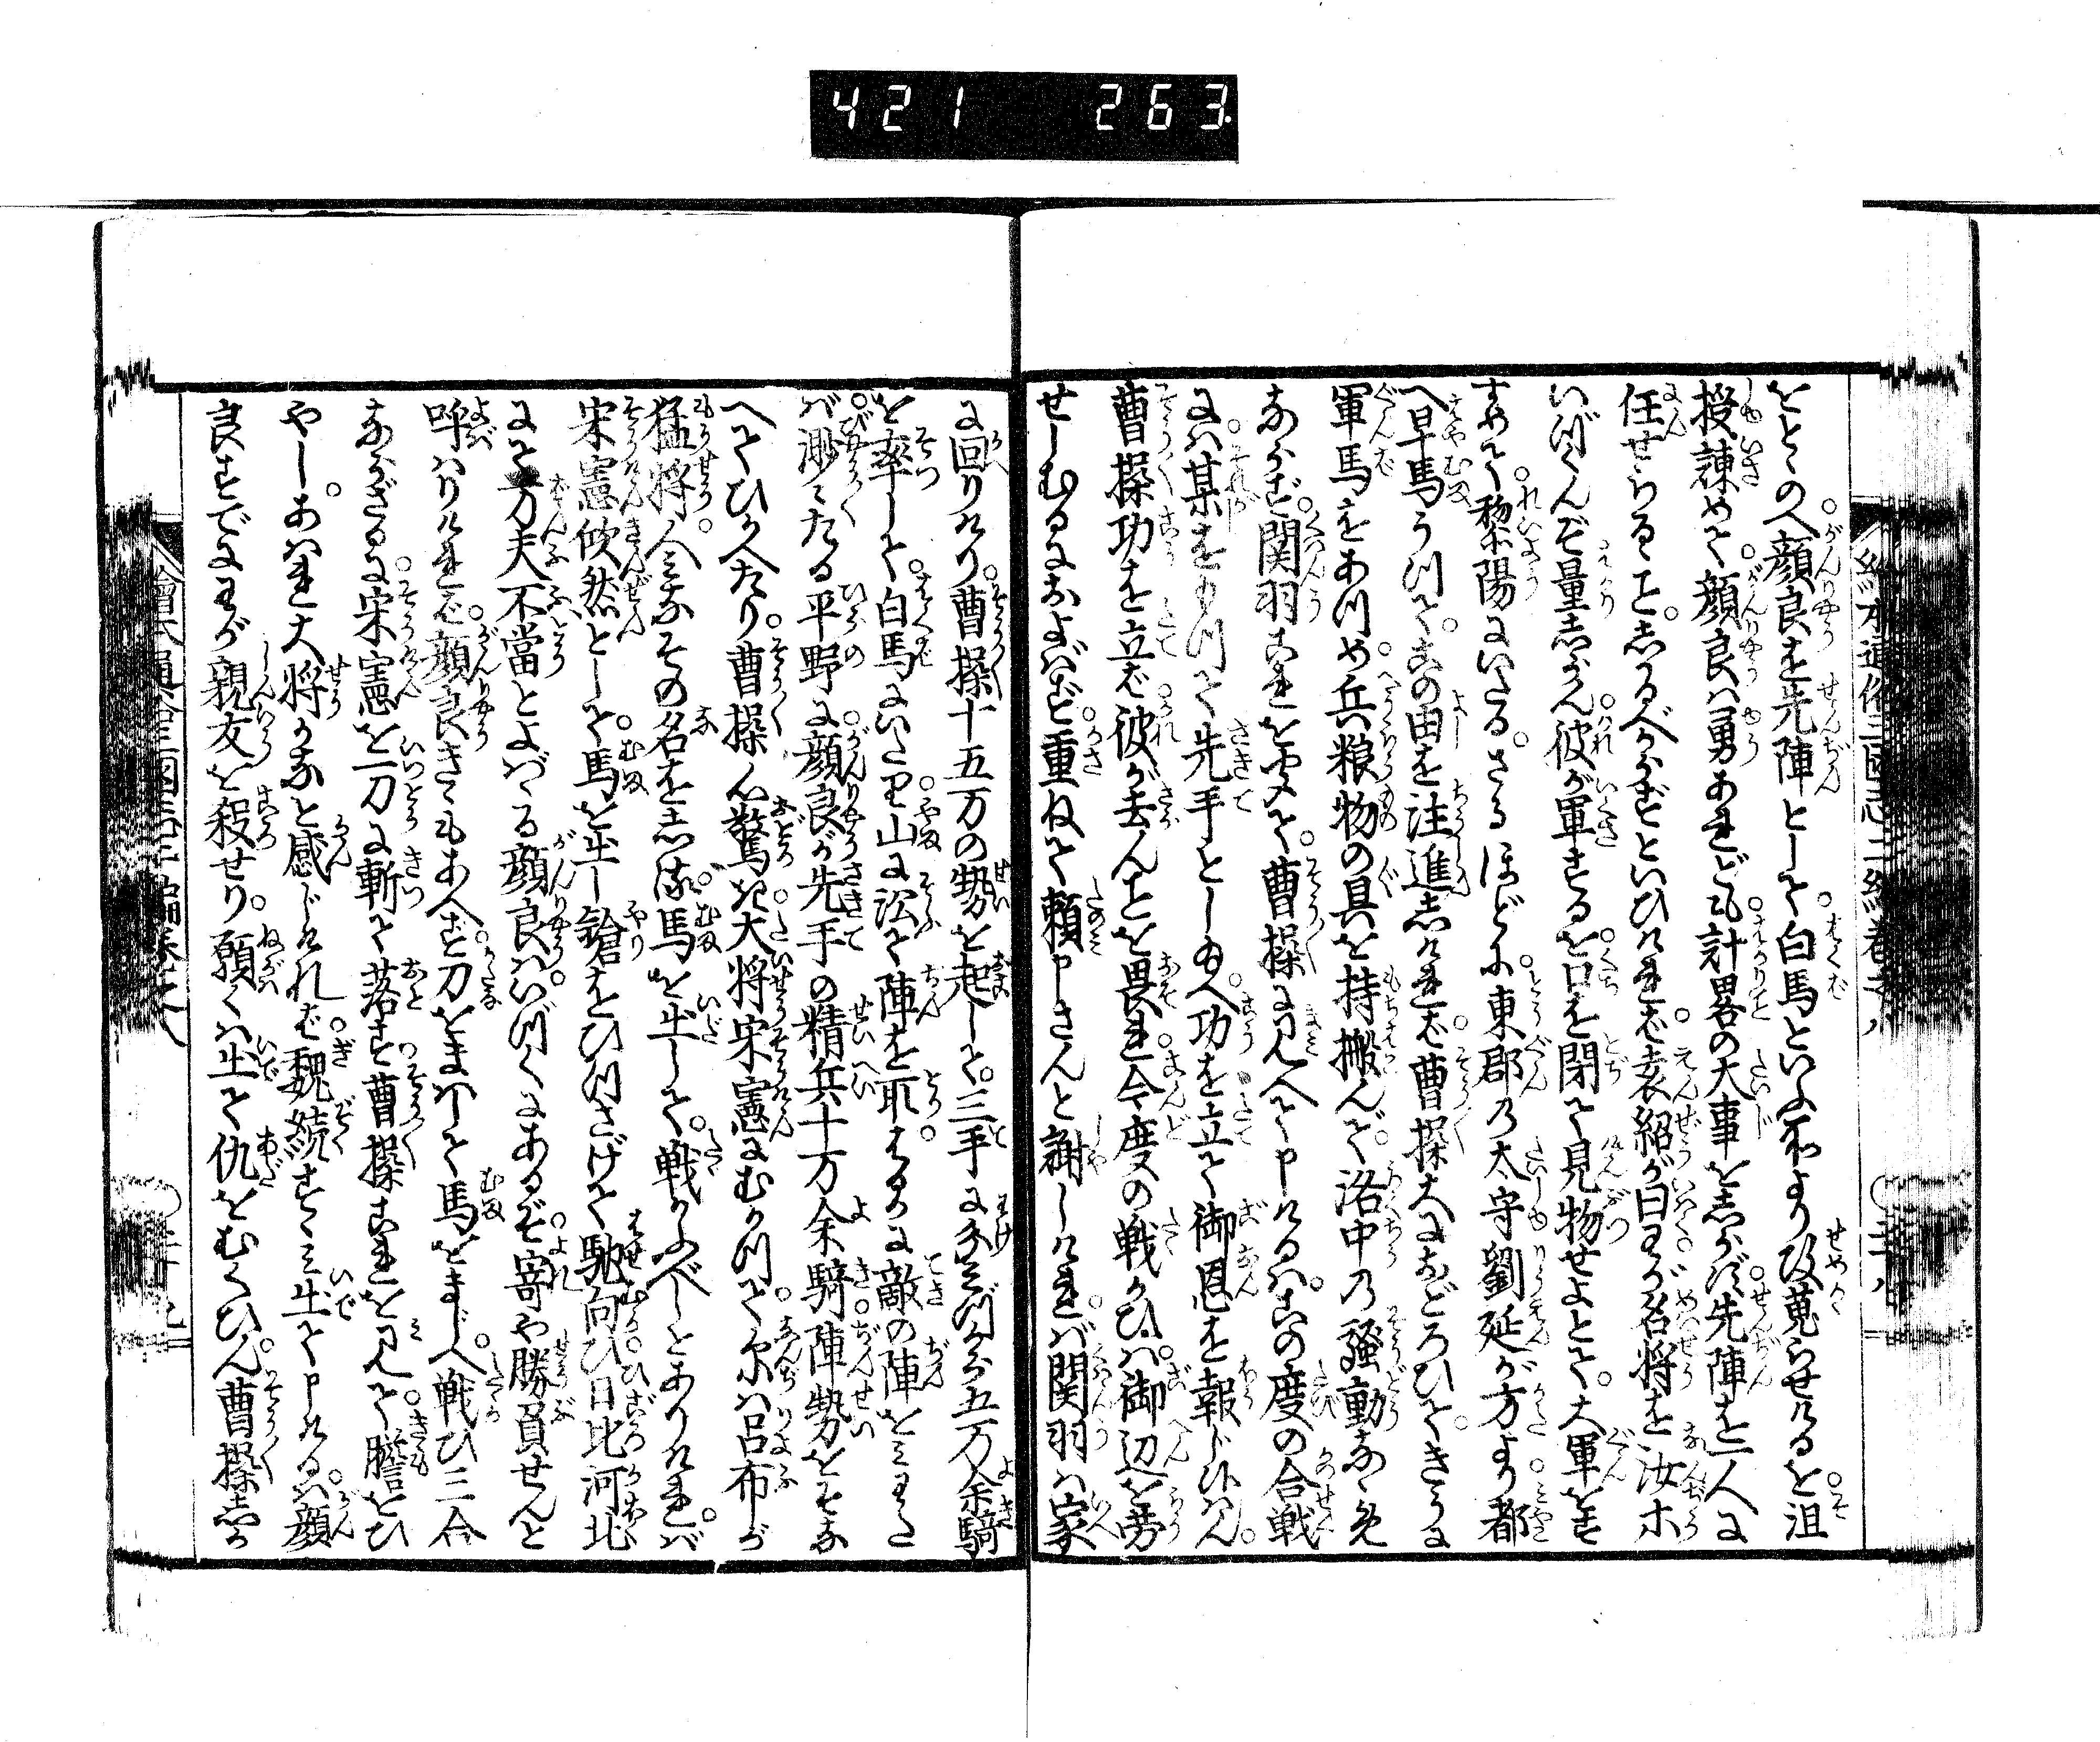 421 263
をとゝのへ顔良を先陣として白馬といふ所より攻蒐らせけるを沮
授諫めて顔良は勇あれども計畧の大事をしらず先陣を一人に
任せらるゝことしかるべからずといひければ袁紹が曰わが名将を汝ホ
いづくんぞ量しらん彼が軍するを口を閉て見物せよとて大軍をす
すめて黎陽にいたるさるほどに東郡の太守劉延が方より都
へ早馬うつてこの由を注進しければ曹操大におどろひてきうに
軍馬をあつめ兵粮物の具を持搬んで洛中の騒動なゝめ
ならず関羽これを聞て曹操に見へて申けるはこの度の合戦
には某をもつて先手とし給へ功を立て御恩を報じ候はん
曹操功を立ば彼が去んことを畏れ今度の戦ひは御辺を労
せしむるにおよばず重ねて頼申さんと謝しければ関羽は家
に回りけり曹操十五万の勢を起して三手に分みづから五万余騎
を率して白馬にいたり山に沿て陣を取はるかに敵の陣をみわたせ
ば渺々たる平野に顔良が先手の精兵十万余騎陣勢をそな
へてひかへたり曹操心驚き大将宋憲にむかつて尓は呂布が
猛将人みなその名をしる馬を出して戦かふべしとありければ
宋憲欣然として馬を出し鎗をひつさげて馳向ひ日比河北
にて万夫不當とよばゝる顔良はいづくにあるぞ寄や勝負せんと
呼はりければ顔良きゝもあへず刀をまはして馬をまじへ戦ひ三合
ならざるに宋憲を一刀に斬て落す曹操これを見て膽をひ
やしあはれ大将かなと感じければ魏続すゝみ出て申けるは顔
良すでにわが親友を殺せり願くは出て仇をむくひん曹操しか